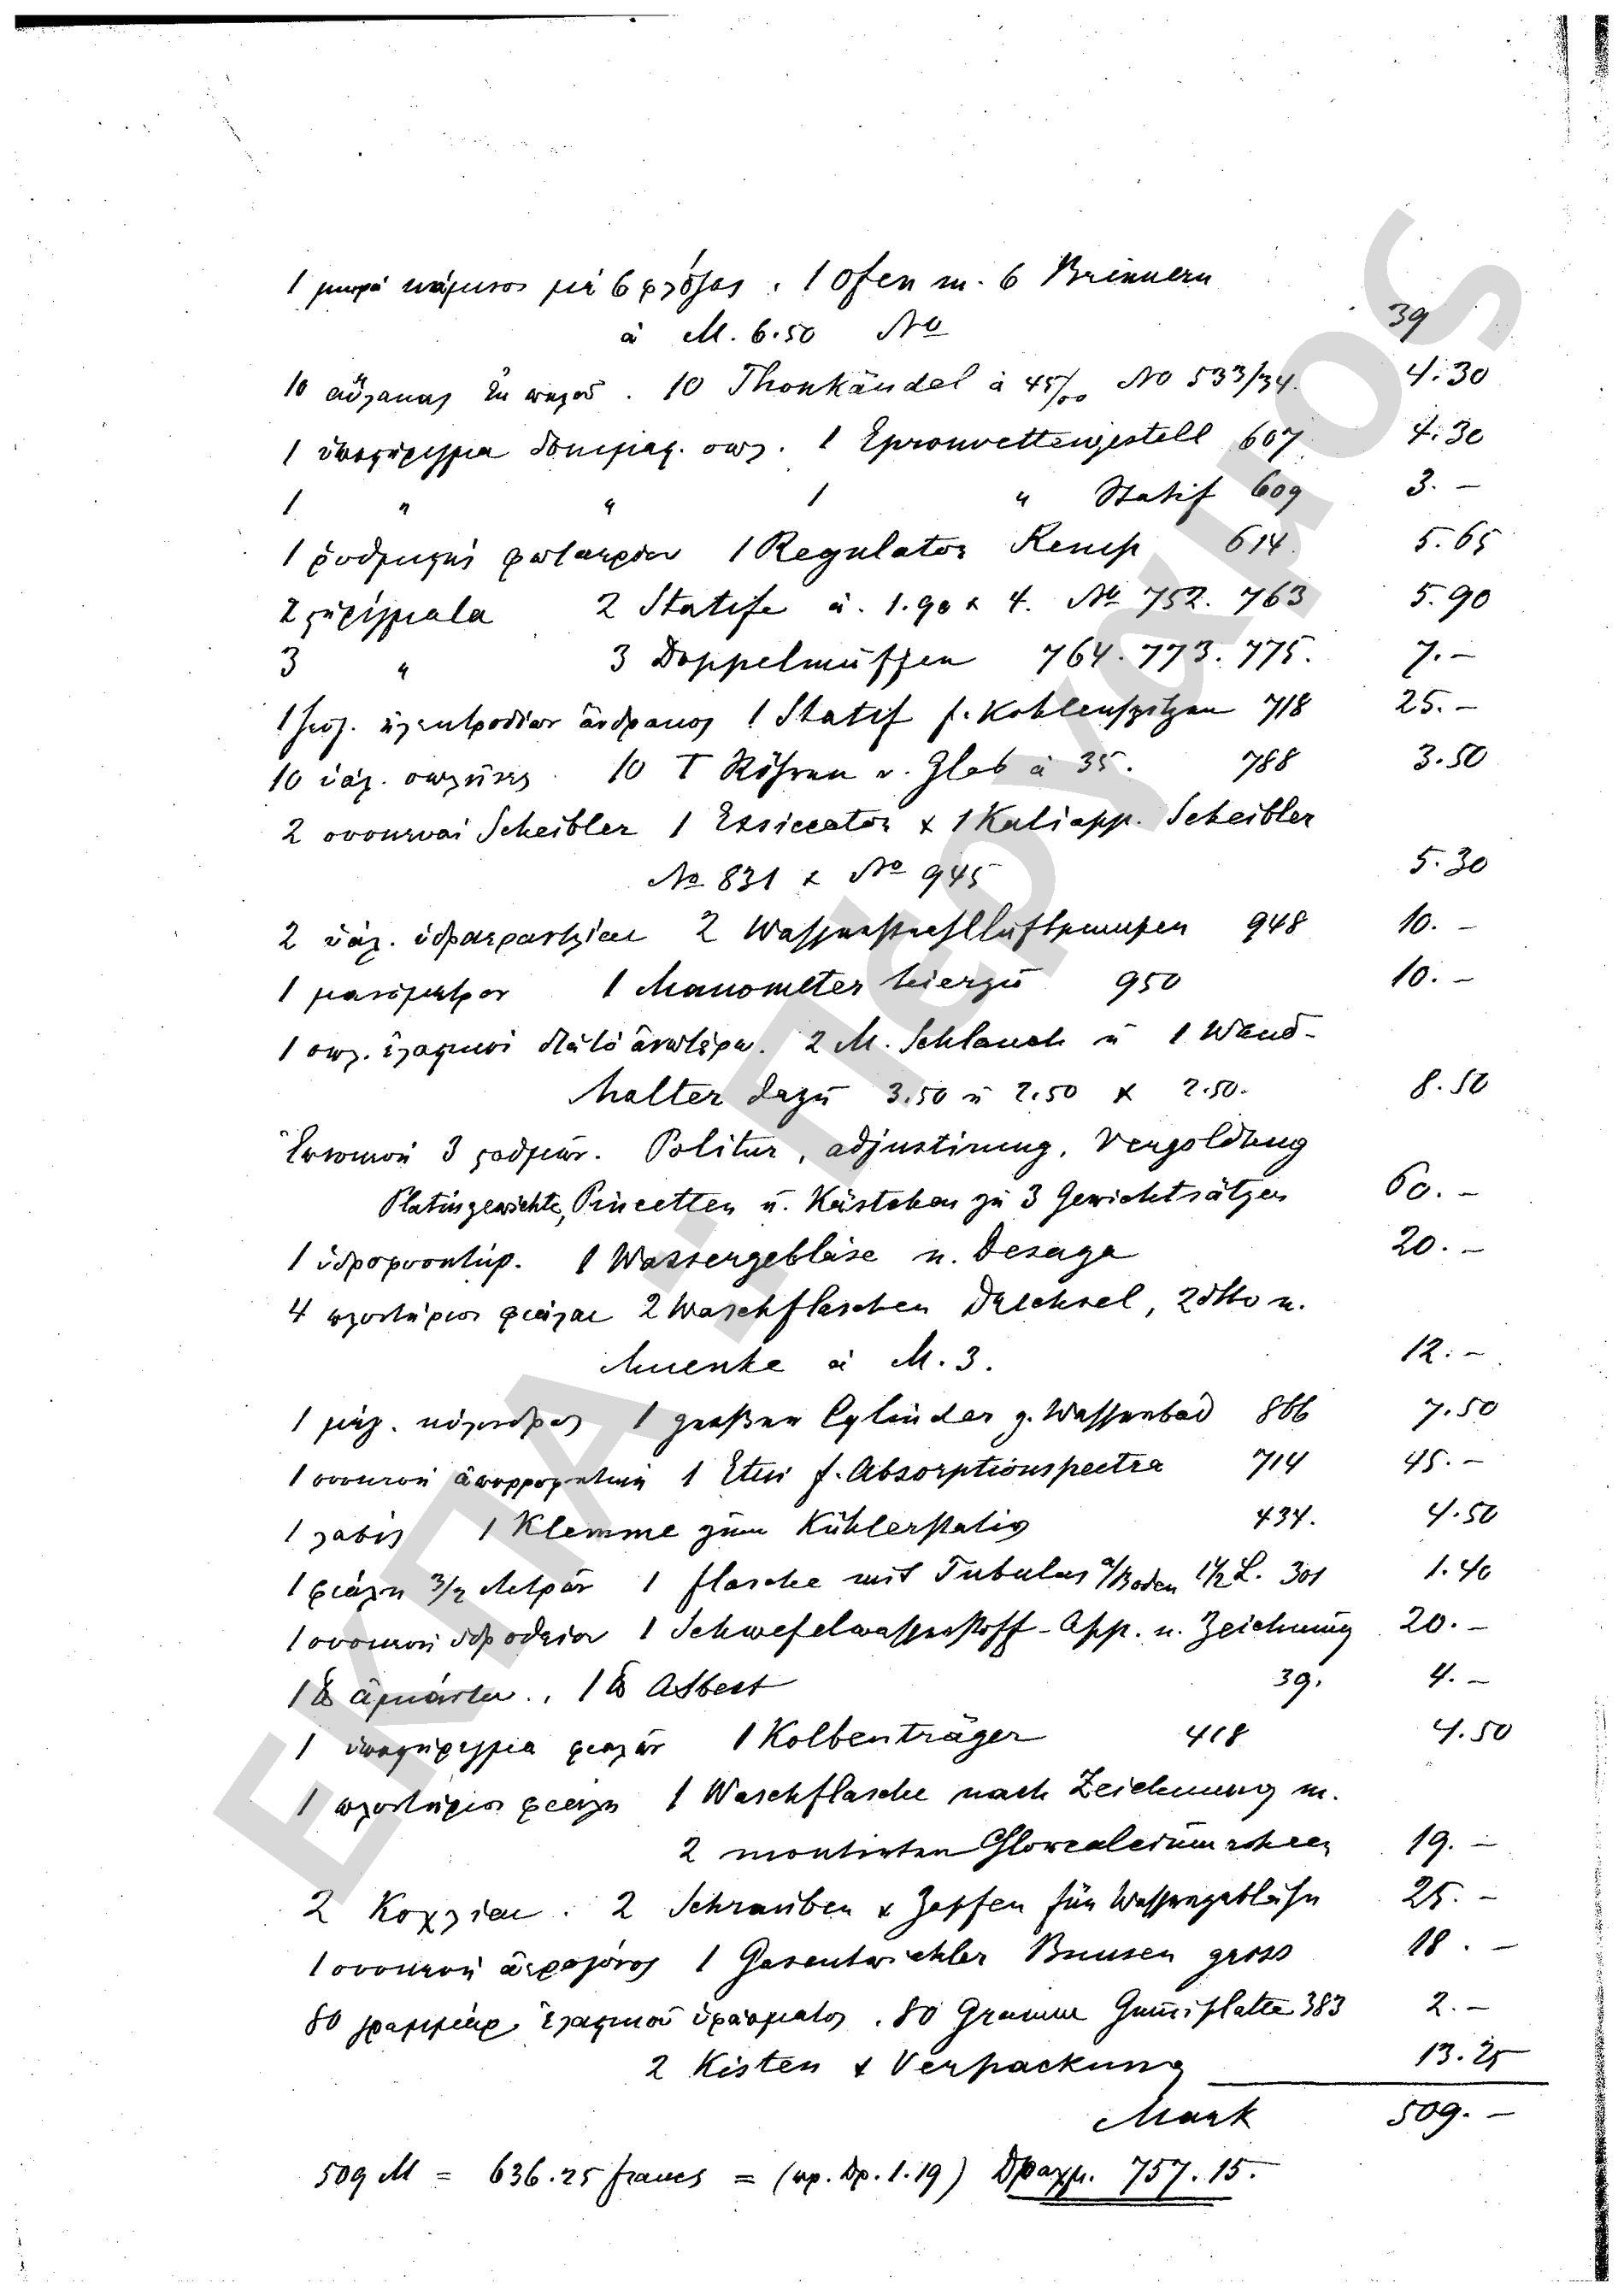 1 μικρά κάμινος μὲ 6 φλόγας . 1 Ofen m. 6 Brennern
à M. 6.50 No 39
10 αὔλακας ἐκ πηλοῦ . 10 Thonkändel à 45/00 No 533/34. 4.30
1 ὑποστήριγμα δοκιμαστ. σωλ. 1 Eprouvettengestell 607 4.30
1 " " 1 " Statif 609 3. –
1 ρυθμιστὴς φωταερίου 1 Regulator Kemp 614. 5.65
2 στηρίγματα 2 Statife à. 1.90 & 4. No 752. 763 5.90
3 " 3 Doppelmuffen 764. 773. 775. 7. –
ἠλεκτροδίων ἄνθρακος 1 Statif f. Kohlenspitzen 718 25. –
10 ὑάλ. σωλῆνες 10 T Röhren v. Glas à 35. 788 3.50
2 συσκευαὶ Scheibler 1 Exsiccator & 1 Kaliapp. Scheibler
No 831 & No 945 5.30
2 ὑάλ. ὑδραεραντλίαι 2 Wasserstrahlluftpumpen 948 10. –
1 μανόμετρον 1 Manometer hierzu 950 10. –
1 σωλ. ἐλαστικοῦ διὰ τὸ ἀνωτέρω. 2 M. Schlauch u 1 Wand-
halter dazu 3.50 u 2.50 & 2.50. 8.50
Ἐπισκευὴ 3 σταθμῶν. Politur, adjustirung, Vergoldung
Platingewichte, Pincetten u. Kästchen zu 3 Gewichtsätzen 60. –
1 ὑδροφυσητήρ. 1 Wassergebläse n. Desaga 20. –
4 πλυντήριοι φιάλαι 2 Waschflaschen Drechsel, 2 dtto n.
Muenke à M. 3. 12. –
1 μέγ. κύλινδρος 1 großer Cylinder z. Wasserbad 866 7.50
1 συσκευὴ ἀπορροφητικὴ 1 Etui f. Absorptionspectra 714 45. –
1 λαβὶς 1 Klemme zum Kühlerstativ 434. 4.50
1 φιάλη 3/2 λιτρῶν 1 flasche mit Tubulus a/Boden 1½ L. 301 1.40
1 συσκευὴ ὑδροθείου 1 Schwefelwasserstoff-App. n. Zeichnung 20. –
1 ℔ ἀμιάντου . 1 ℔ Asbest 39. 4. –
1 ὑποστήριγμα φιαλῶν 1 Kolbenträger 418 4.50
1 πλυντήριος φιάλη 1 Waschflasche nach Zeichnung m.
2 montirten Chlorcalciumrohren 19. –
2 Κοχλίαι . 2 Schrauben & Zapfen für Wassergebläse 25. –
1 συσκευὴ ἀεραγόνος 1 Gasentwickler Bunsen gross 18. –
80 γραμμάρ. ἐλαστικοῦ ὑφάσματος . 80 Gramm Gummiplatte 383 2. –
2 Kisten & Verpackung 13.25
Mark 509. –
509 M = 636.25 francs = (πρ. Δρ. 1.19) Δραχμ. 757.15.
ΕΚΠΑ - ΠΕΡΓΑΜΟΣ